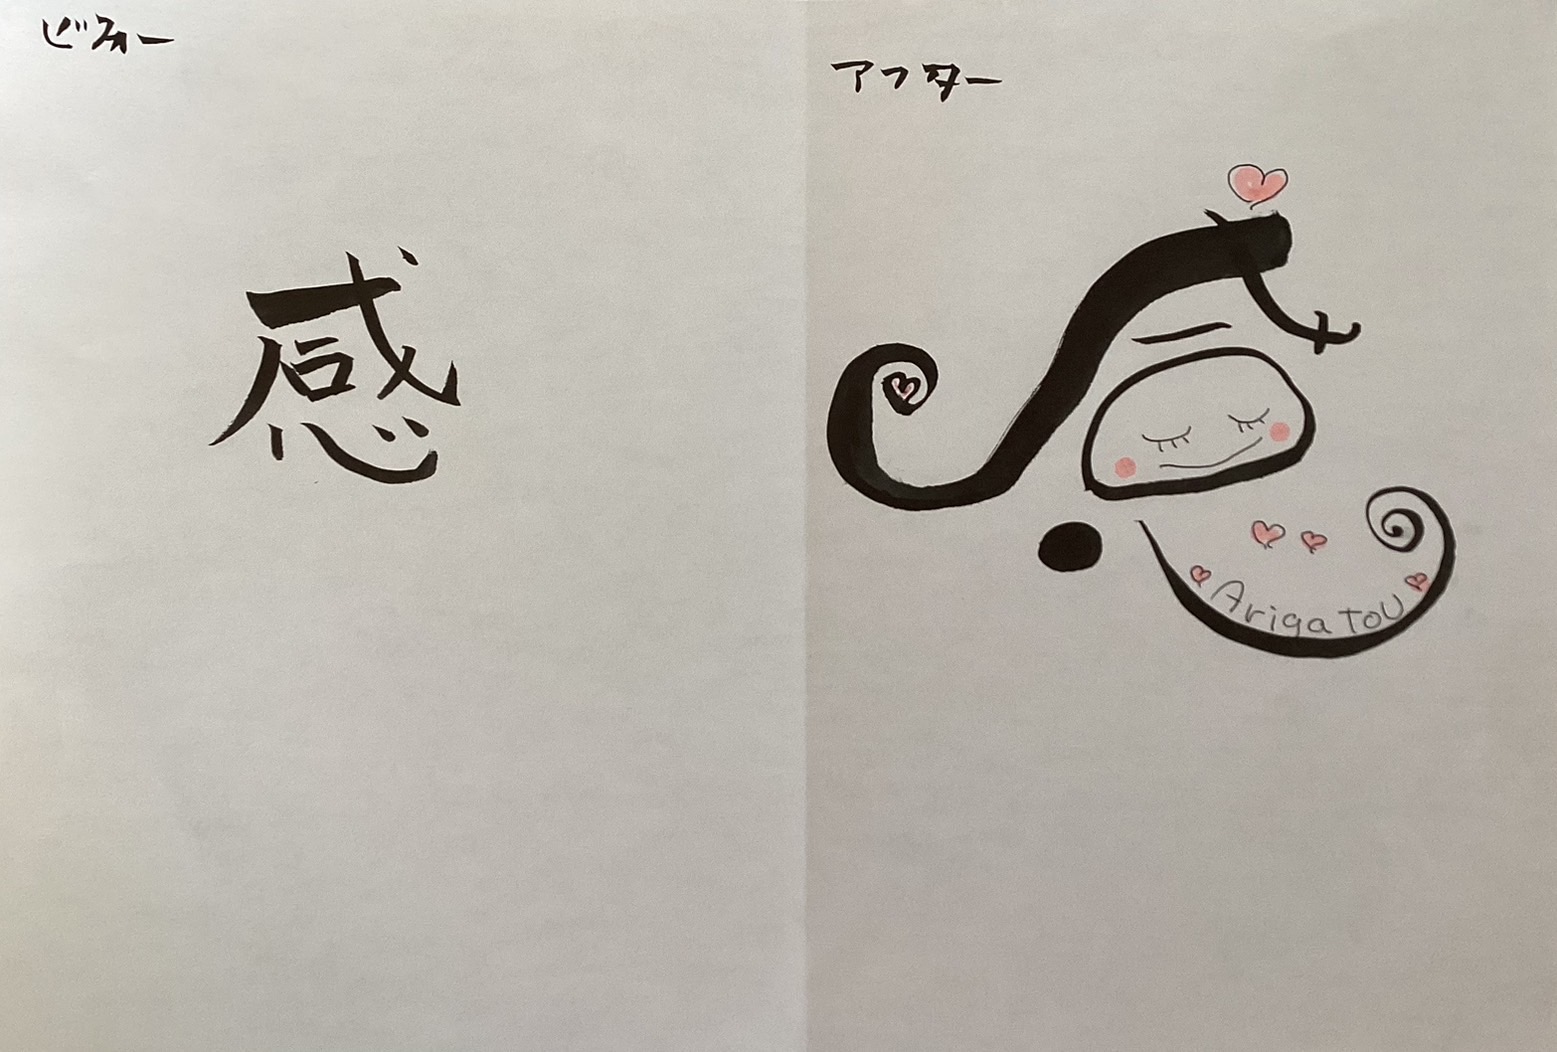 ビフォー
感
アフター
感
Arigatou